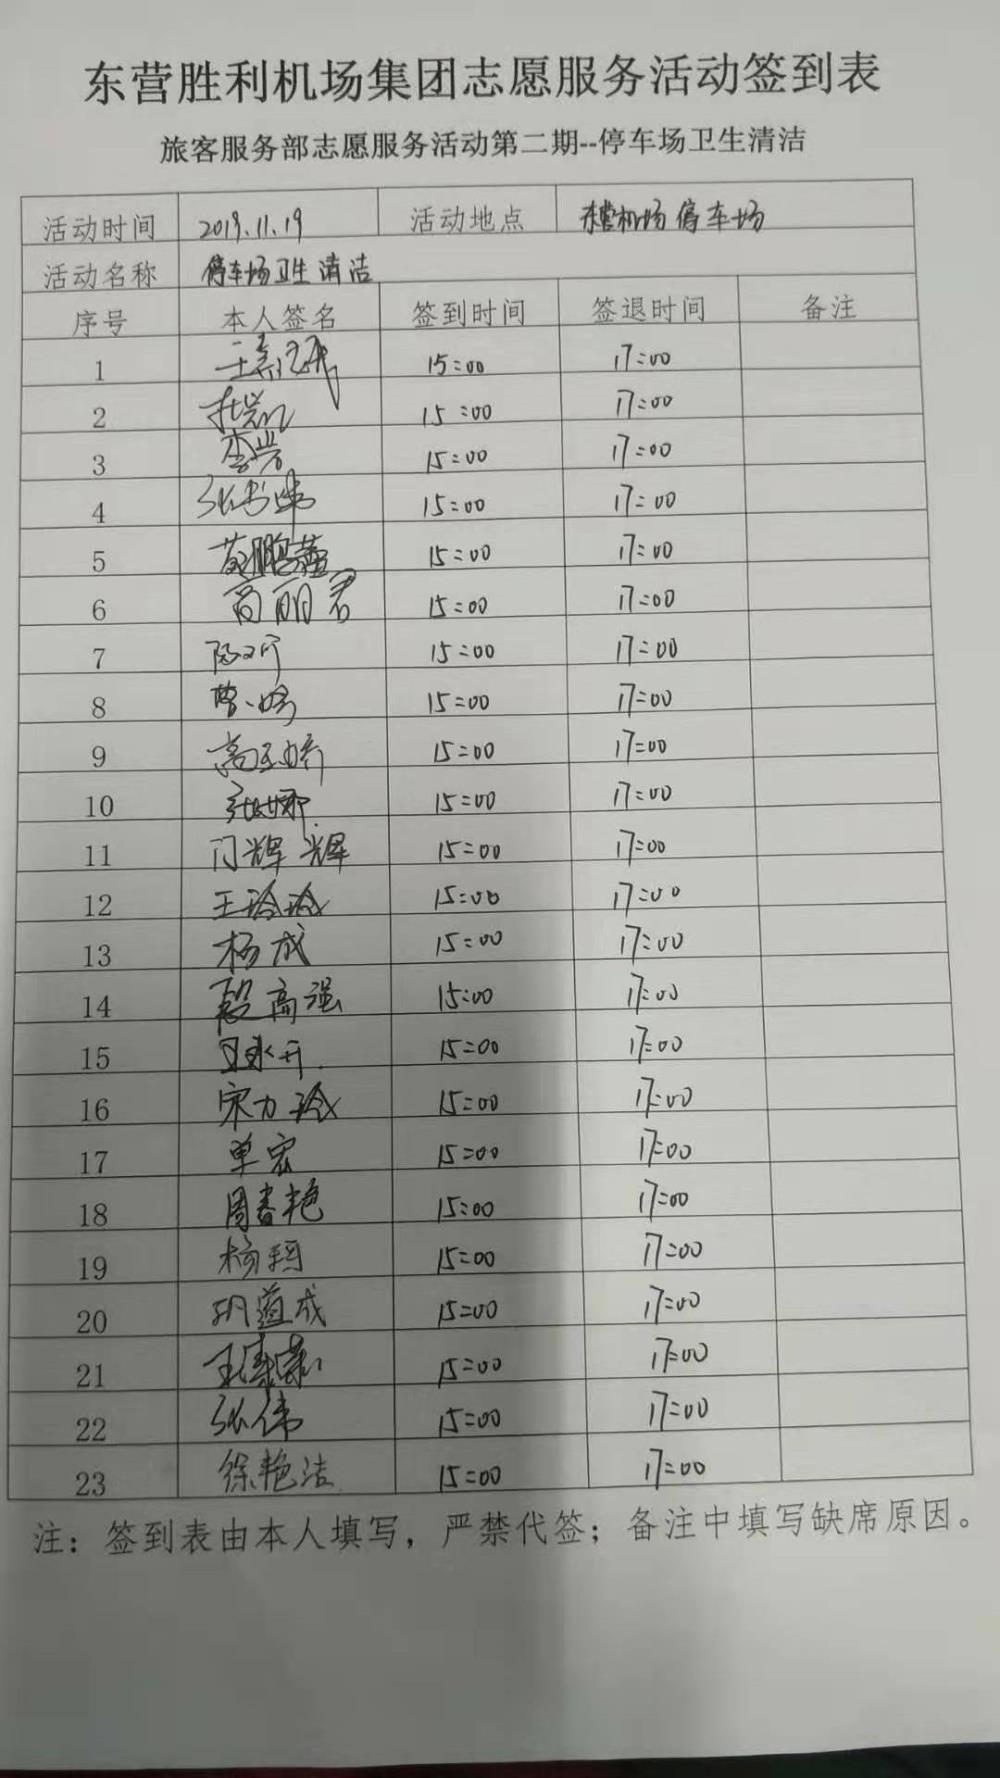 东营胜利机场集团志愿服务活动签到表
旅客服务部志愿服务活动第二期--停车场卫生清洁
活动时间 2019.11.19 活动地点 东营机场停车场
活动名称 停车场卫生清洁
序号 本人签名 签到时间 签退时间 备注
1 15:00 17:00
2 15:00 17:00
3 15:00 17:00
4 15:00 17:00
5 15:00 17:00
6 高丽君 15:00 17:00
7 15:00 17:00
8 15:00 17:00
9 高玉娇 15:00 17:00
10 张娜 15:00 17:00
11 闫辉辉 15:00 17:00
12 王玲玲 15:00 17:00
13 杨成 15:00 17:00
14 段高强 15:00 17:00
15 15:00 17:00
16 宋力玲 15:00 17:00
17 单宏 15:00 17:00
18 周春艳 15:00 17:00
19 15:00 17:00
20 巩道成 15:00 17:00
21 15:00 17:00
22 张伟 15:00 17:00
23 徐艳洁 15:00 17:00
注：签到表由本人填写，严禁代签；备注中填写缺席原因。